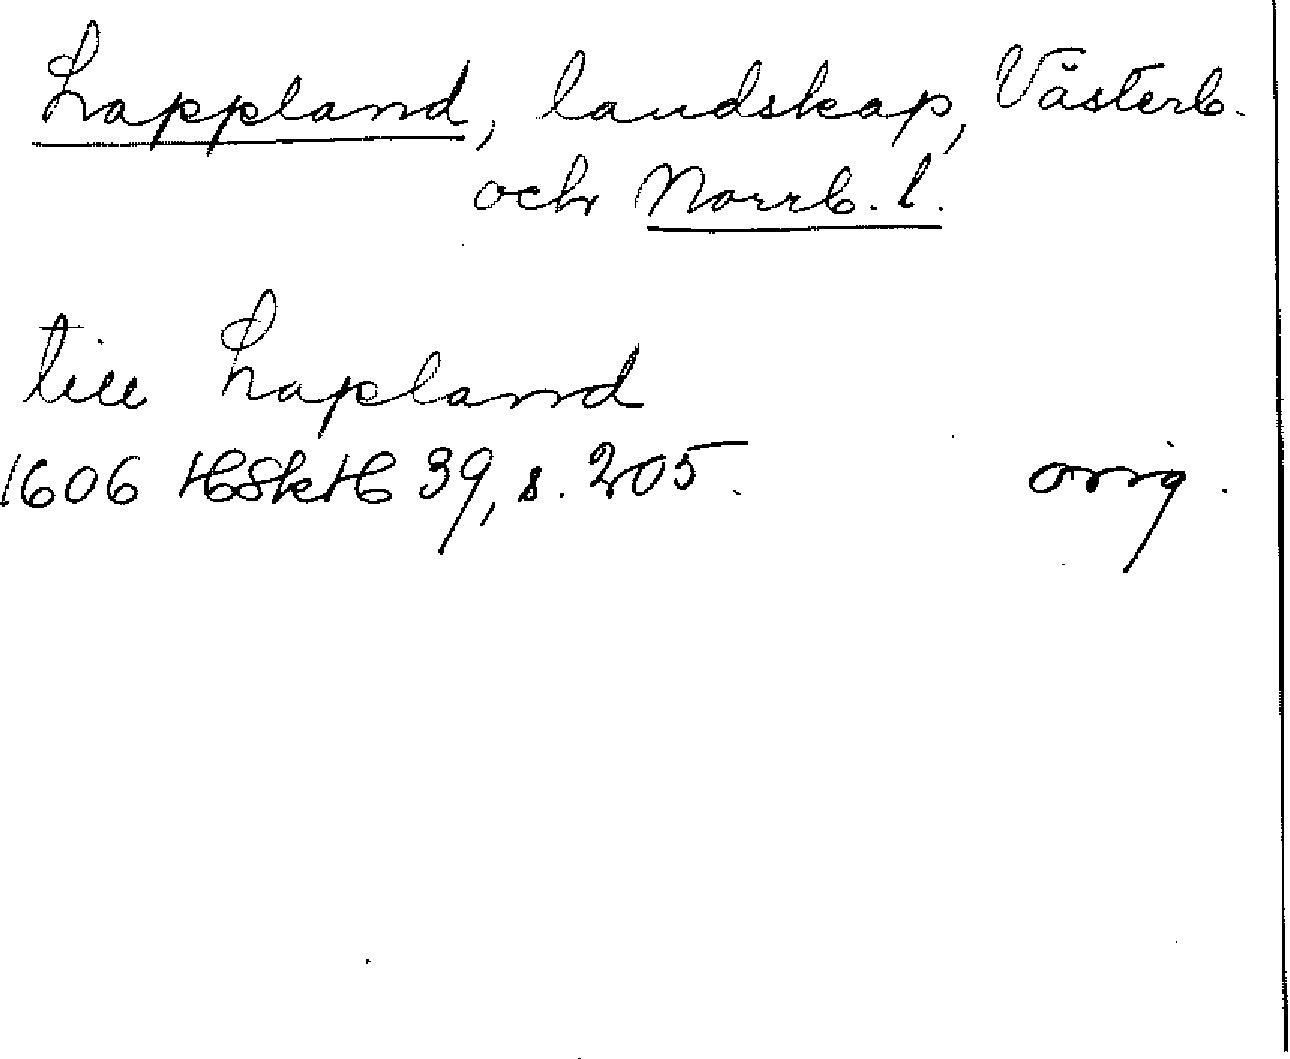 Lappland, landskap, Västerb.
och Norrb. l.
till Lapland
1606 HSkH 39, s. 205. orig.